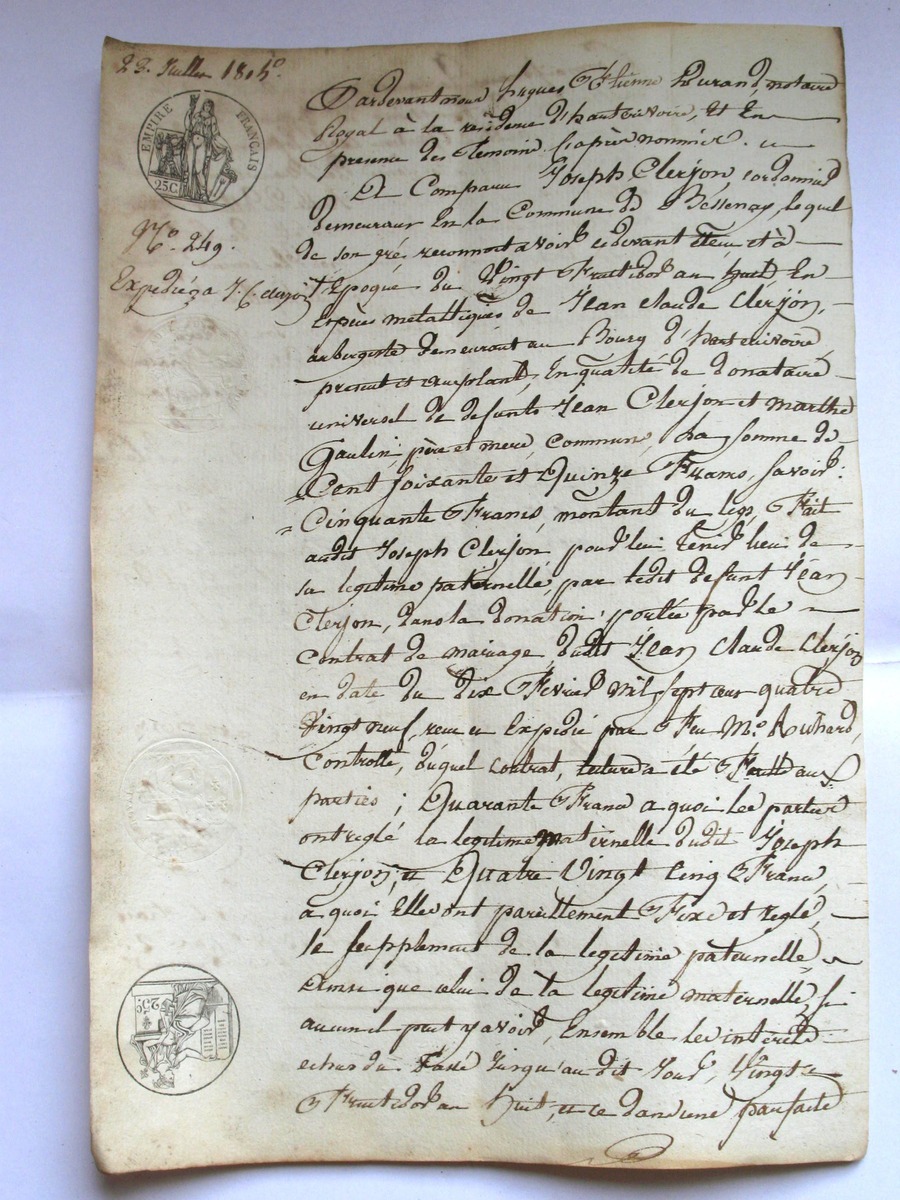 23. Juillet 1815.
EMPIRE FRANÇAIS
25C
N.o 249.
Expédié a J. C. clerjon
Pardevant nous hugues Etienne Durand, notaire
Royal à la residence d'hauterivoire, Et En
presence des Temoins Ci après nommés.
Et Comparu Joseph Clerjon, cordonnier
demeurant En la Commune de Bessenay, lequel
de son gré, reconnoit avoir cidevant Eteu et à
l'Epoque du Vingt Fructidor an huit En
Espèces metalliques de Jean claude Clerjon,
aubergiste demeurant au Bourg d'hauterivoire,
present et acceptant, En qualité de donataire
universel de defunts Jean Clerjon et marthe
Gaulin, père et mere, communs, La somme de
Cent soixante et Quinze Francs, savoir:
Cinquante Francs, montant du legs Fait
audit Joseph Clerjon, pour lui tenir lieu de
sa legitime paternelle, par ledit defunt Jean
Clerjon, dans la donation portée par le
contrat de mariage dudit Jean Claude Clerjon
en date du dix Fevrier mil sept cens quatre
Vingt neuf, recu et Expedié par Feu M.e Richard,
Controllé, duquel contrat, lecture a été Faitte aux
parties; Quarante Francs a quoi les parties
ont reglé la legitime maternelle dudit Joseph
Clerjon; et Quatre Vingt Cinq Francs,
a quoi Elles ont pareillement Fixé et reglé,
le supplement de la legitime paternelle,
ainsi que celui de la legitime maternelle, si
aucun il peut y avoir, Ensemble les intérêts
echus du Passé Jusqu'au dit Jour, Vingt
Fructidor an huit, et ce dans une parfaite
25C